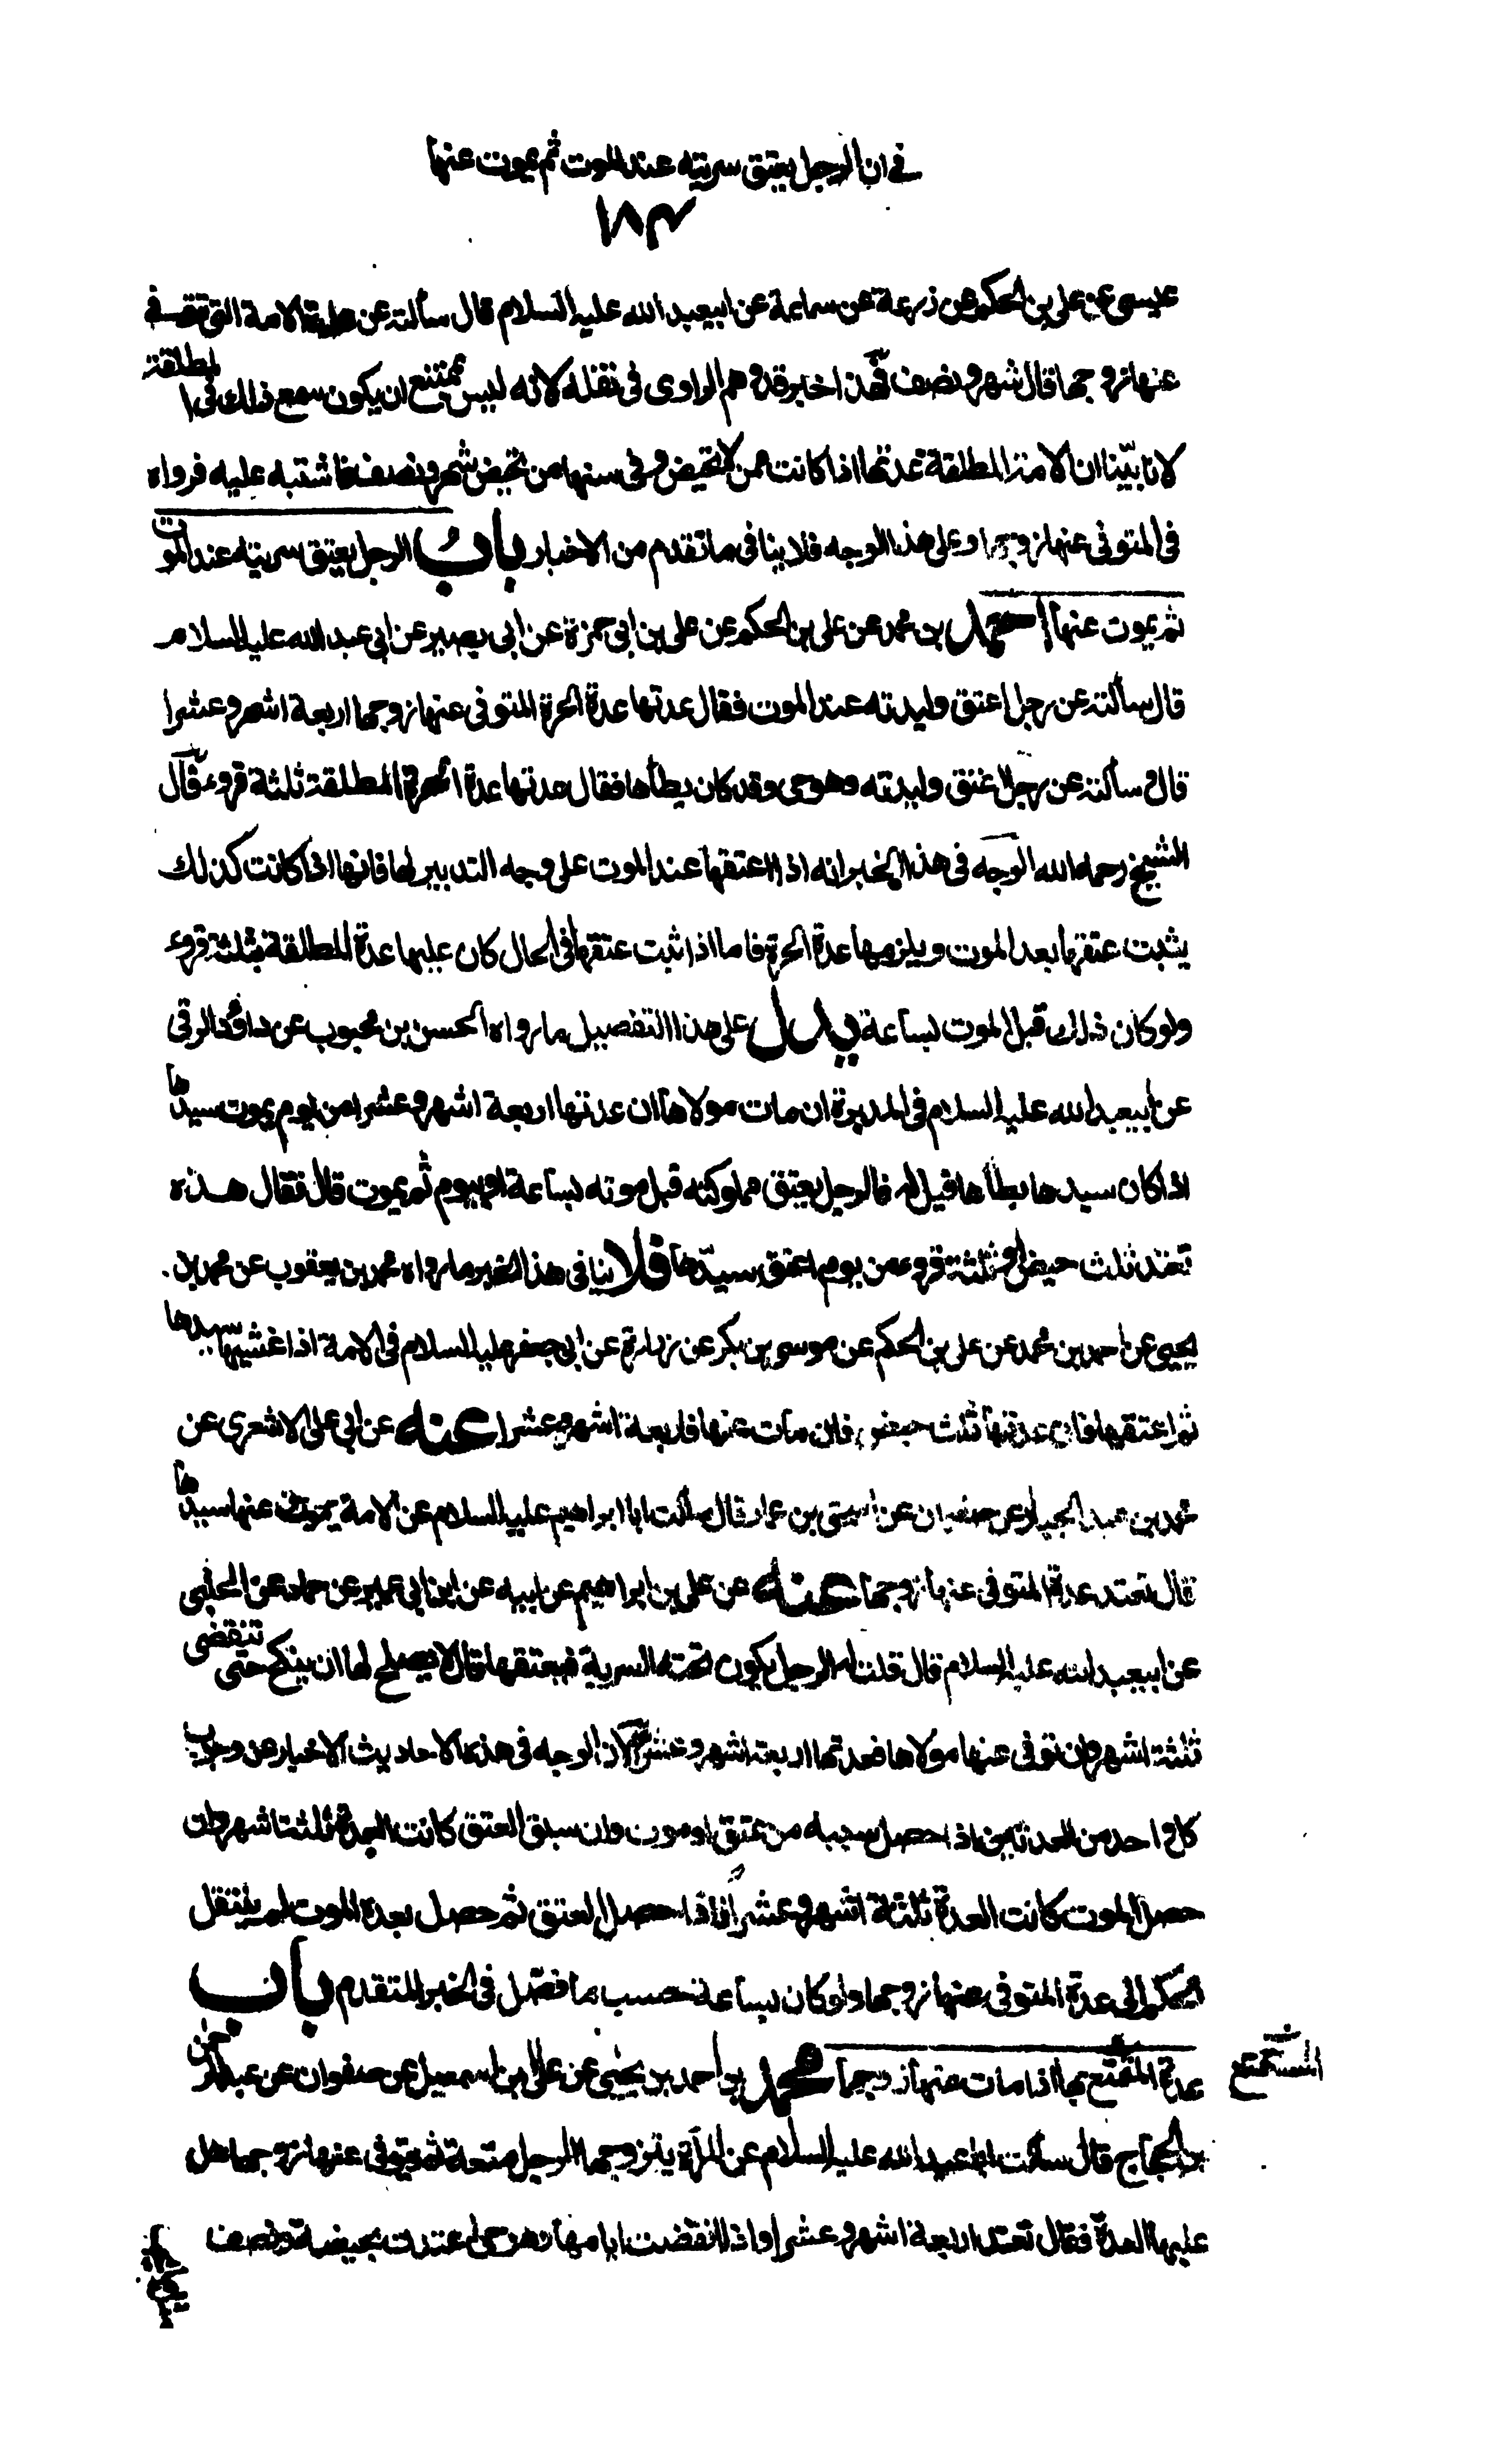 في ان الرجل يعتق سريته عند الموت ثم يموت عنها
١٨٣
عيسى عن علي بن الحكم عن زرعة عن سماعة عن ابيعبد الله عليه السلام قال سألته عن عدة الامة التي توفي
عنها زوجها قال شهر ونصف فهذا خبر قد وهم الراوى فى نقله لانه ليس بممتنع ان يكون سمع ذلك فى المطلقة
لانا بيّنا ان الامة المطلقة عدتها اذا كانت ممن لا تحيض وفى سنها من تحيض شهر ونصف فاشتبه عليه فرواه
فى المتوفى عنها زوجها وعلى هذا الوجه فلا ينافى ما تقدم من الاخبار باب الرجل يعتق سريته عند الموت
ثم يموت عنها احمد بن محمد عن على بن الحكم عن على بن ابى حمزة عن ابى بصير عن ابى عبد الله عليه السلام
قال سألته عن رجل اعتق وليدته عند الموت فقال عدتها عدة الحرة المتوفى عنها زوجها اربعة اشهر وعشرا
قال وسألته عن رجل اعتق وليدته وهو حى وقد كان يطأها فقال عدتها عدة الحرة المطلقة ثلثة قروء قال
الشيخ رحمه الله الوجه فى هذا الخبر انه اذا اعتقها عند الموت على وجه التدبير لها فانها اذا كانت كذلك
يثبت عتقها بعد الموت ويلزمها عدة الحرة فاما اذا ثبت عتقها فى الحال كان عليها عدة المطلقة ثلثة قروء
ولو كان ذلك قبل الموت بساعة يدل على هذا التفصيل ما رواه الحسن بن محبوب عن داود الرقى
عن ابيعبد الله عليه السلام فى المدبرة ان مات مولاها ان عدتها اربعة اشهر وعشرا من يوم يموت سيدها
اذا كان سيدها يطأها قيل له فالرجل يعتق مملوكته قبل موته بساعة او بيوم ثم يموت قال فقال هذه
تعتد ثلث حيض او ثلثة قروء من يوم اعتق سيدها فلا ينافى هذا الخبر ما رواه محمد بن يعقوب عن محمد بن
يحيى عن احمد بن محمد عن على بن الحكم عن موسى بن بكر عن زرارة عن ابى جعفر عليه السلام فى الامة اذا غشيها سيدها
ثم اعتقها فان عدتها ثلث حيض فان مات عنها فاربعة اشهر وعشرا عنه عن ابى على الاشعرى عن
محمد بن عبد الجبار عن صفوان عن اسحق بن عمار قال سألت ابا ابراهيم عليه السلام عن الامة يموت عنها سيدها
قال تعتد عدة المتوفى عنها زوجها عنه عن على بن ابراهيم عن ابيه عن ابن ابى عمير عن حماد عن الحلبى
عن ابيعبد الله عليه السلام قال قلت له الرجل يكون تحته السرية فيعتقها قال لا يصلح لها ان ينكح حتى تنقضى
ثلثة اشهر وان توفى عنها مولاها فعدتها اربعة اشهر وعشرا لان الوجه فى هذه الاحاديث الاخبار عن وجوب
كل واحد من العدتين اذا حصل سببه من عتق او موت وان سبق العتق كانت العدة ثلثة اشهر وان
حصل الموت كانت العدة ثلثة اشهر وعشرا فاذا حصل العتق ثم حصل بعده الموت لم ينتقل
حكم الى عدة المتوفى عنها زوجها ولو كان بساعة حسب ما فصّل فى الخبر المتقدم باب
عدة المتمتع بها اذا مات عنها زوجها محمد بن احمد بن يحيى عن على بن اسمعيل عن صفوان عن عبد الرحمن
المستمتع
بن الحجاج قال سألت ابا عبد الله عليه السلام عن المرأة يتزوجها الرجل متعة ثم يتوفى عنها زوجها هل
عليها العدة فقال تعتد اربعة اشهر وعشرا واذا انقضت ايامها وهو حى اعتدت بحيضة ونصف